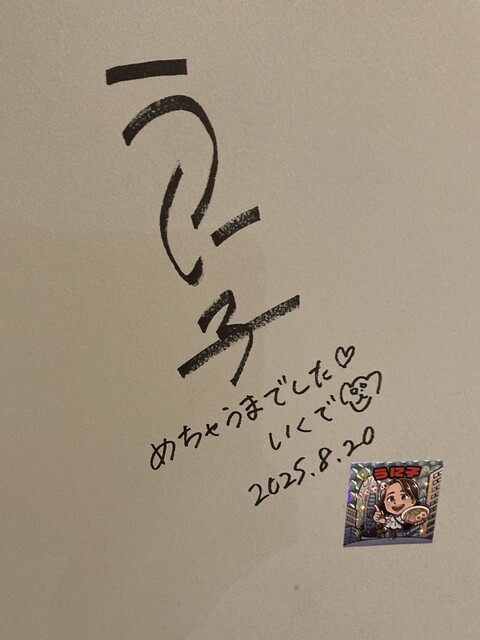 うに子
めちゃうまでした♡
いくで
2025.8.20
うに子